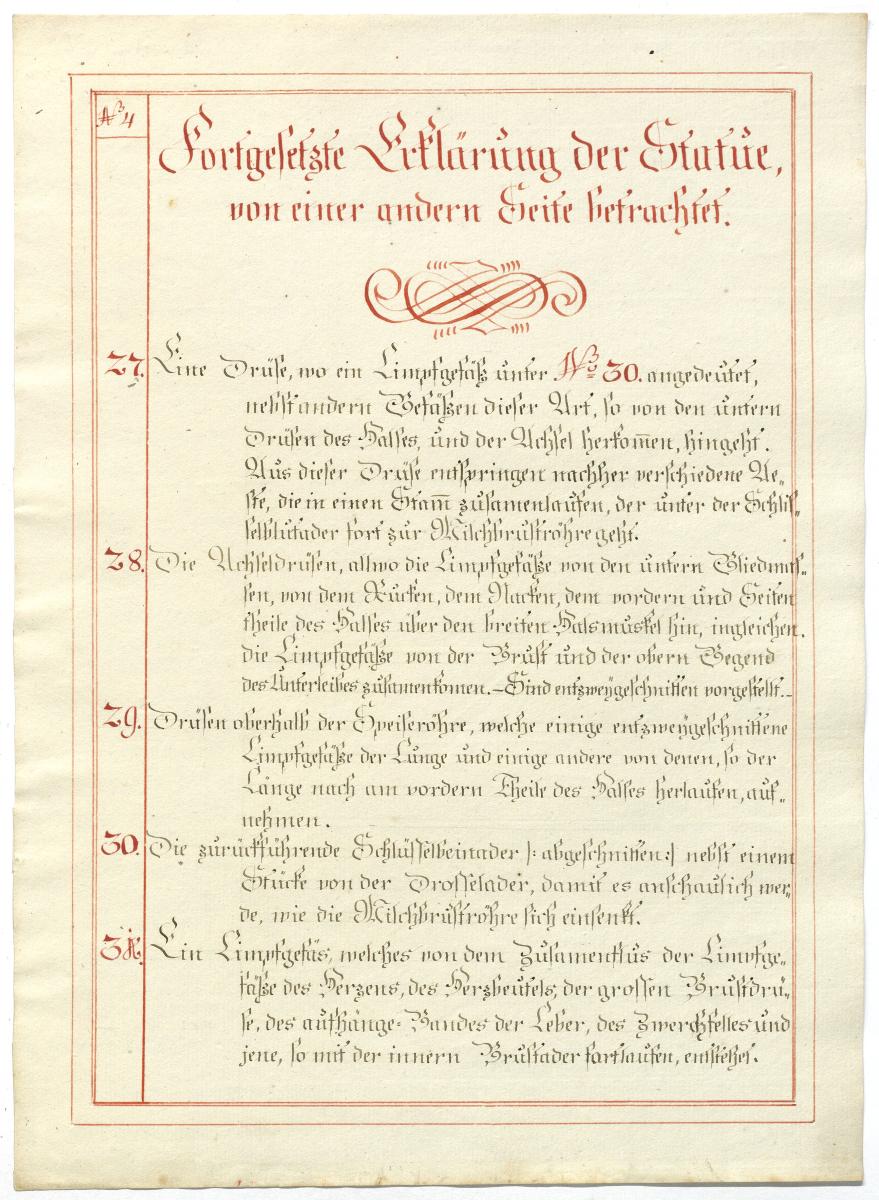 No 4
Fortgesetzte Erklärung der Statue,
von einer andern Seite betrachtet.
27. Eine Drüse, wo ein Limpfgefäß unter No 30. angedeutet,
nebst andern Gefäßen dieser Art, so von den untern
Drüsen des Halses, und der Achsel herkom̄en, hingeht.
Aus dieser Drüse entspringen nachher verschiedene Ae„
ste, die in einen Stam̄ zusamenlaufen, der unter der Schlüs„
selblutader fort zur Milchbruströhre geht.
28. Die Achseldrüsen, allwo die Limpfgefäße von den untern Gliedmas„
sen, von dem Rucken, dem Nacken, dem vordern und Seiten
theile des Halses über den breiten Halsmuskel hin, ingleichen.
die Limpfgefäße von der Brust und der obern Gegend
des Unterleibes zusamenkomen. – Sind entzweygeschnitten vorgestellt. –
29. Drüsen oberhalb der Speiseröhre, welche einige entzweygeschnittene
Limpfgefäße der Lunge und einige andere von denen, so der
Länge nach am vordern Theile des Halses herlaufen, auf„
nehmen.
30. Die zurückführende Schlüsselbeinader |: abgeschnitten :| nebst einem
Stücke von der Drosselader, damit es anschaulich wer„
de, wie die Milchbruströhre sich einsenkt.
31. Ein Limpfgefäs, welches von dem Zusamenflus der Limpfge„
fäße des Herzens, des Herzbeutels, der grossen Brustdrü„
se, des aufhänge= Bandes der Leber, des Zwerchfelles und
jene, so mit der innern Brustader fortlaufen, entstehet.